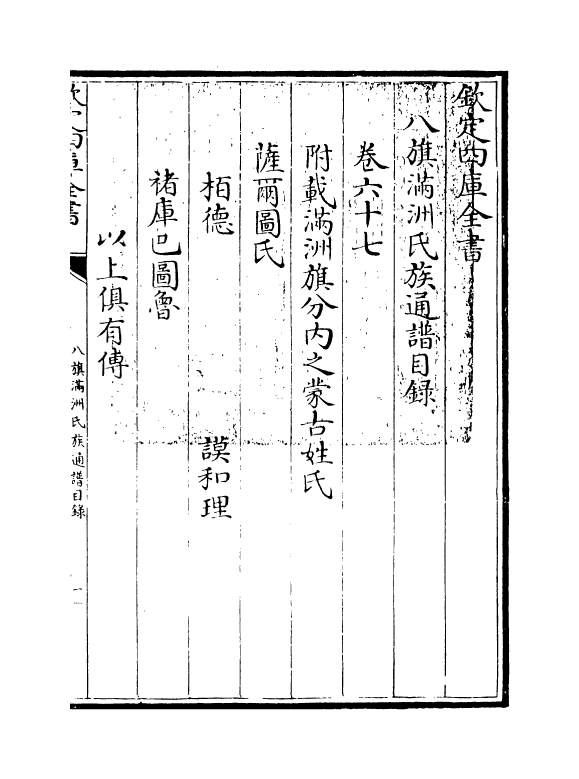 欽定四庫全書
八旗滿洲氏族通譜目錄
卷六十七
附載滿洲旗分内之蒙古姓氏
薩爾圖氏
栢德　謨和理
禇庫巴圖魯
以上俱有傳
欽定四庫全書
八旗滿洲氏族通譜目錄
一